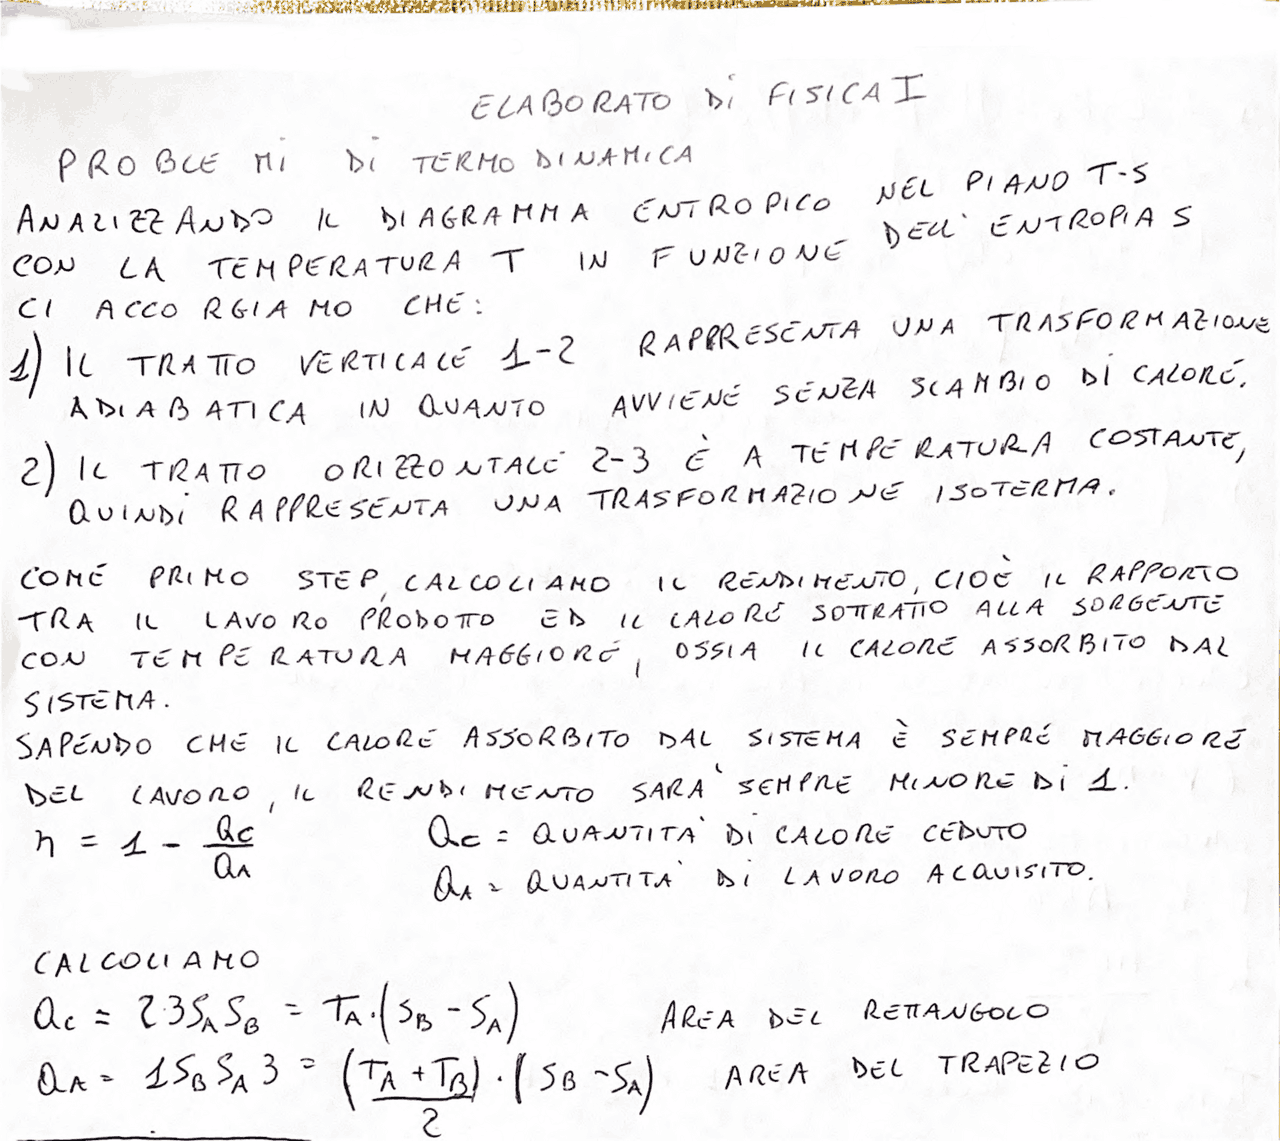 ELABORATO Di FISICA I
PROBLEMi Di TERMODINAMICA
ANALIZZANDO IL DIAGRAMMA ENTROPICO NEL PIANO T-S
CON LA TEMPERATURA T IN FUNZIONE DELL'ENTROPIA S
CI ACCORGIAMO CHE:
1) IL TRATTO VERTICALE 1-2 RAPPRESENTA UNA TRASFORMAZIONE
ADIABATICA IN QUANTO AVVIENE SENZA SCAMBIO Di CALORE.
2) IL TRATTO ORIZZONTALE 2-3 È A TEMPERATURA COSTANTE,
QUINDi RAPPRESENTA UNA TRASFORMAZIONE ISOTERMA.
COME PRIMO STEP, CALCOLIAMO IL RENDIMENTO, CIOÈ IL RAPPORTO
TRA IL LAVORO PRODOTTO ED IL CALORE SOTTRATTO ALLA SORGENTE
CON TEMPERATURA MAGGIORE, OSSIA IL CALORE ASSORBITO DAL
SISTEMA.
SAPENDO CHE IL CALORE ASSORBITO DAL SISTEMA È SEMPRE MAGGIORE
DEL LAVORO, IL RENDIMENTO SARA' SEMPRE MINORE Di 1.
η = 1 - Qc/QA Qc = QUANTITA' Di CALORE CEDUTO
QA = QUANTITA' Di LAVORO ACQUISITO.
CALCOLIAMO
Qc = 23SASB = TA·(SB-SA) AREA DEL RETTANGOLO
QA = 1SBSA3 = (TA+TB)/2·(SB-SA) AREA DEL TRAPEZIO